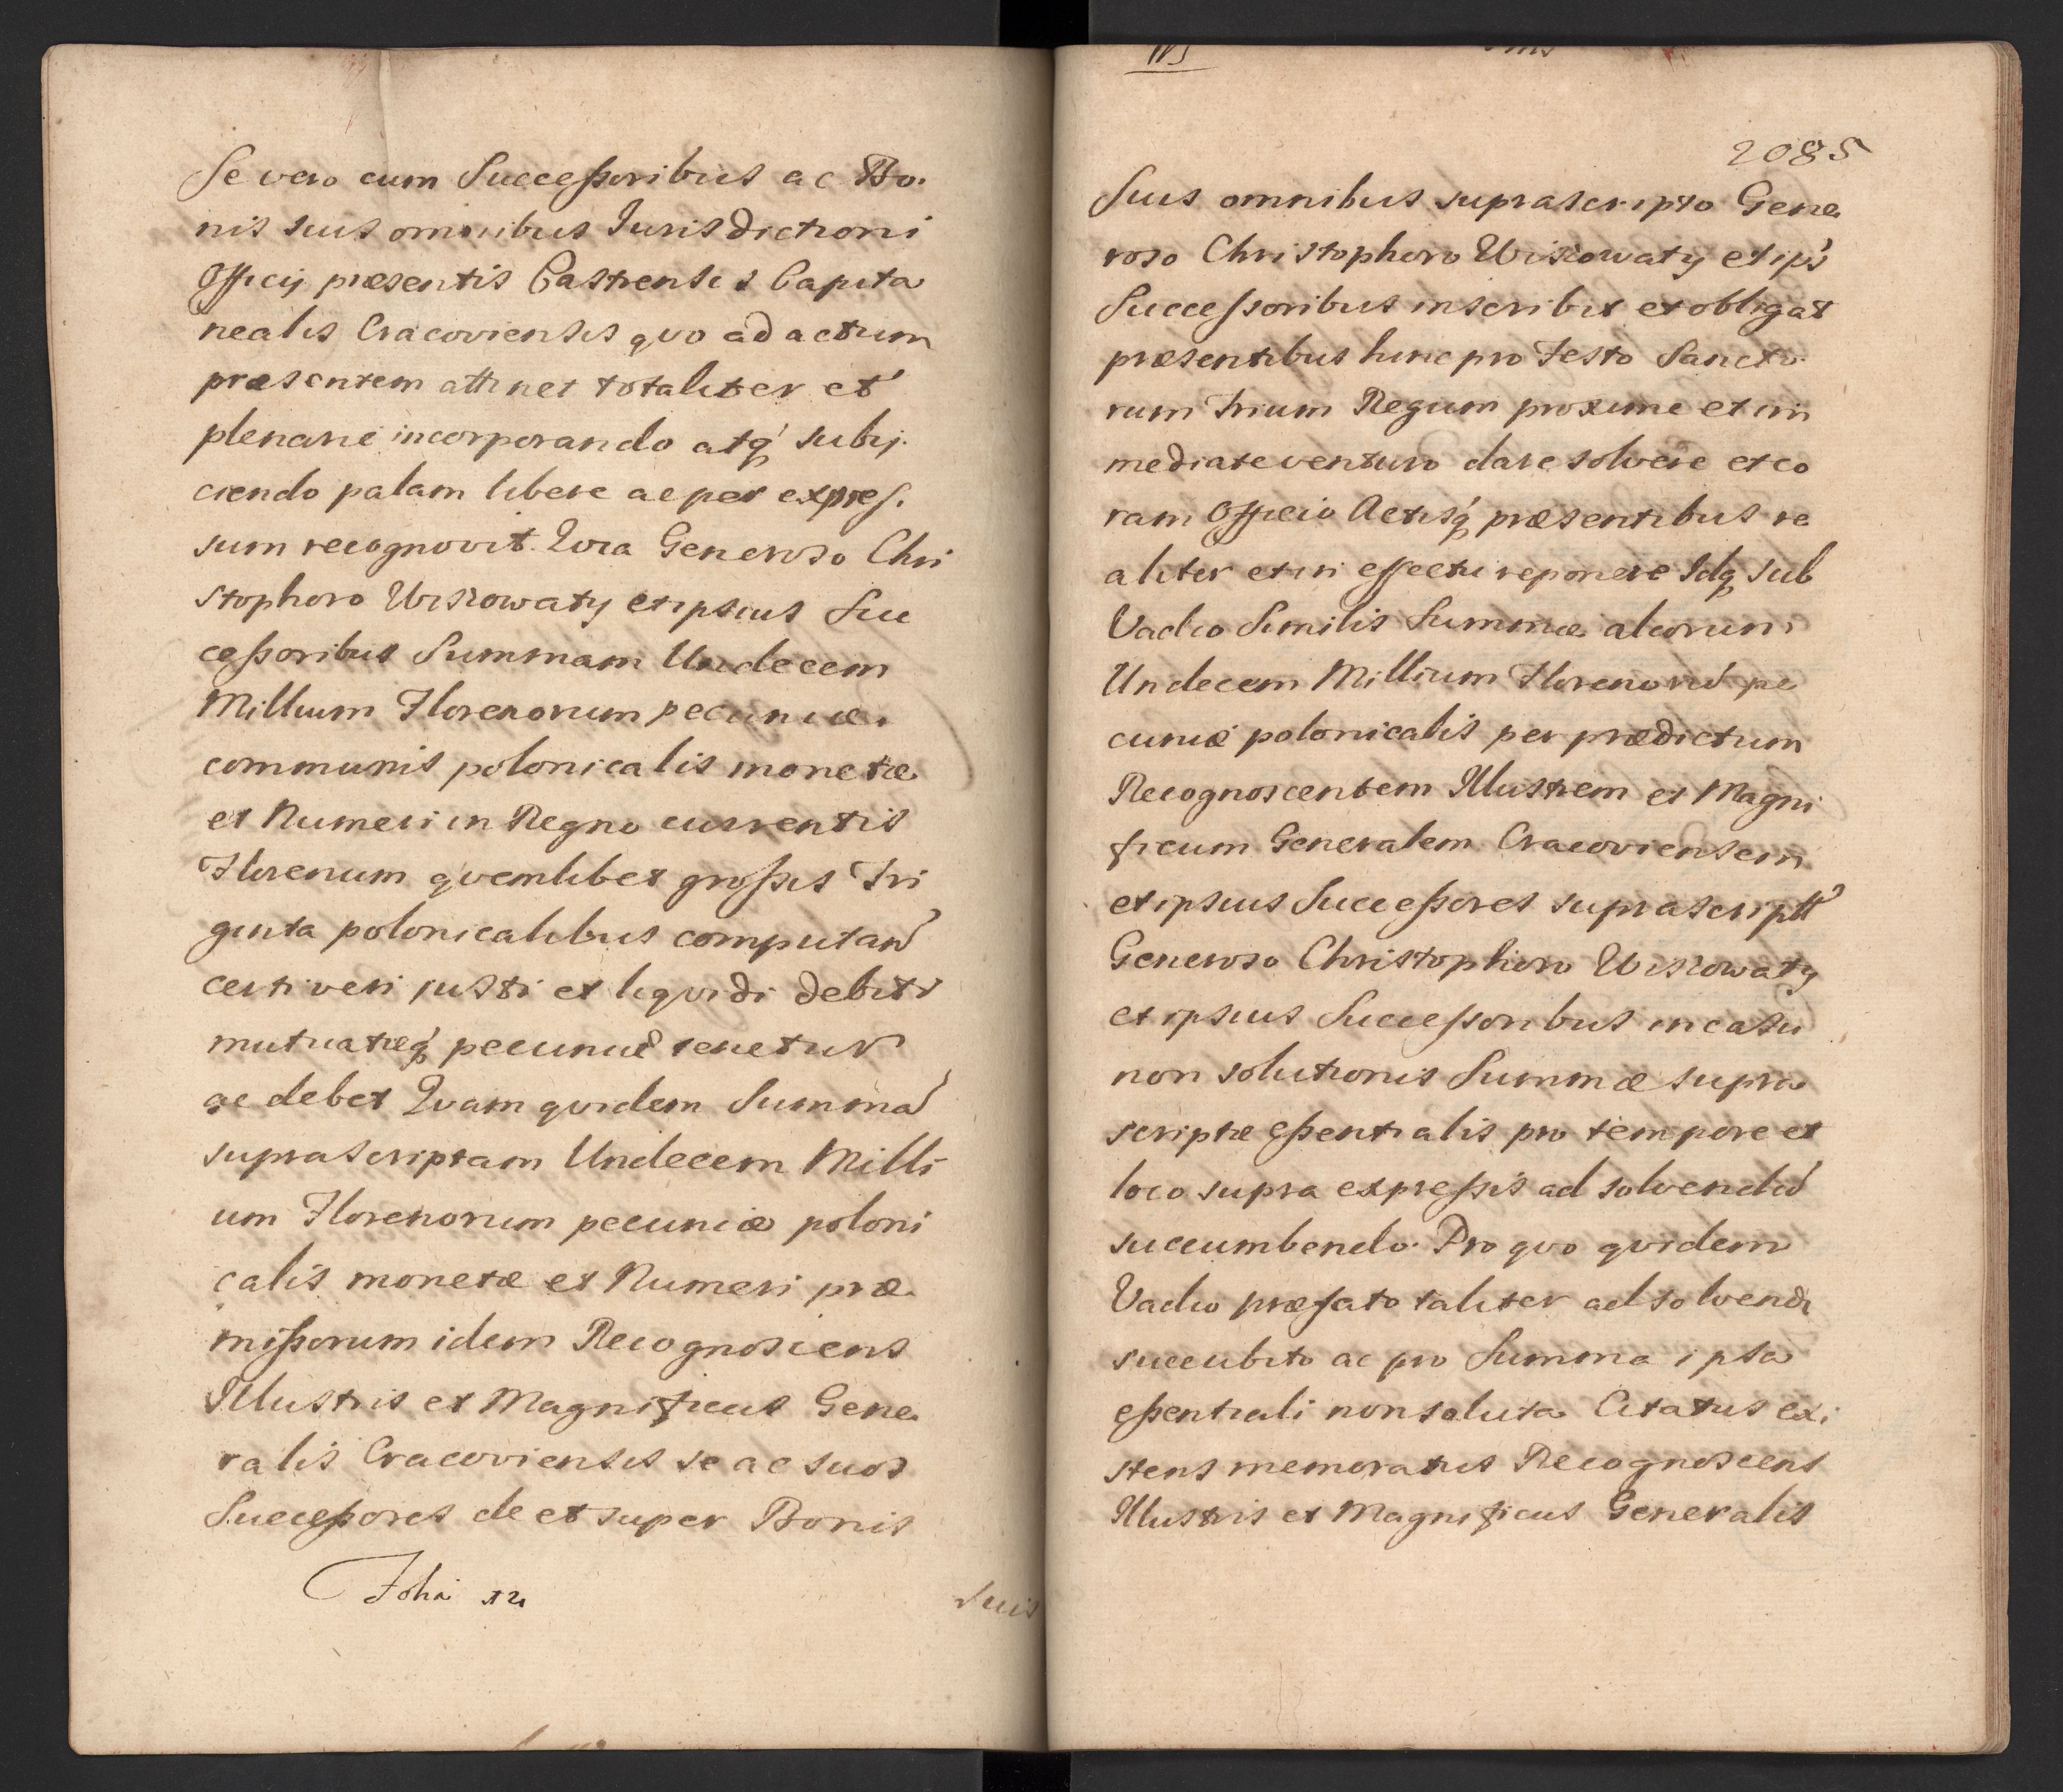 Se vero cum Successoribus ac Bo-
nis suis omnibus Jurisdictioni
Officij præsentis Castrensis Capita
nealis Cracoviensis quo ad actum
præsentem attinet totaliter et
plenarie incorporando atq̃ subij-
ciendo palam libere ac per expres-
sum recognovit. Quia Generoso Chri
stophoro Wiszowaty et ipsius Suc
cessoribus Summam Undecem
Millium Florenorum pecuniæ
communis polonicalis monetæ
et Numeri in Regno currentis
Florenum quemlibet grossis Tri
ginta polonicalibus computan̄
certi veri justi et liquidi debiti
mutuatæq̃ pecuniæ tenetur
ac debet Quam quidem Summā
suprascriptam Undecem Milli
um Florenorum pecuniæ poloni
calis monetæ et Numeri præ
missorum idem Recognoscens
Illustris et Magnificus Gene
ralis Cracoviensis se ac suos
Successores de et super Bonis
suis
2085
Suis omnibus suprascripto Gene
roso Christophoro Wiszowaty et ips̄
Successoribus inscribit et obligat
præsentibus hinc pro Festo Sancto
rum Trium Regum proxime et im
mediate venturo dare solvere et co
ram Officio Actisq̃ præsentibus re
aliter et in effectu reponere Idq̃ sub
Vadio Similis Summæ aliorum
Undecem Millium Florenorū pe
cuniæ polonicalis per prædictum
Recognoscentem Illustrem et Magni
ficum Generalem Cracoviensem
et ipsius Successores suprascript̄
Generoso Christophoro Wiszowaty
et ipsius Successoribus in casu
non solutionis Summæ supra
scriptæ essentialis pro tempore et
loco supra expressis ad solvendū
succumbendo. Pro quo quidem
Vadio præfato taliter ad solvend̄
succubito ac pro Summa ipsa
essentiali non soluta Citatus exi
stens memoratus Recognoscens
Illustris et Magnificus Generalis